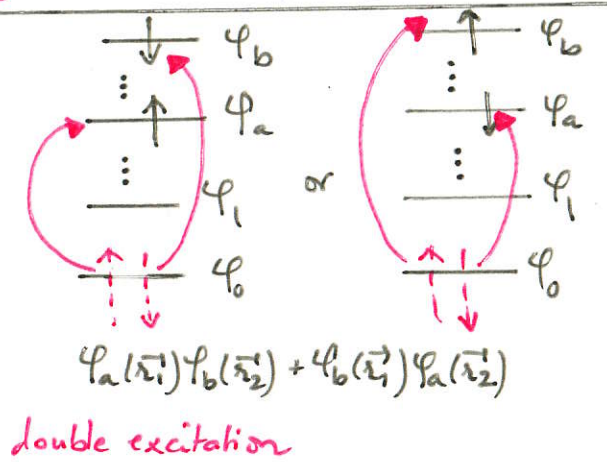 φb φb
φa φa
φ1 or φ1
φ0 φ0
φa(r⃗1)φb(r⃗2) + φb(r⃗1)φa(r⃗2)
double excitation